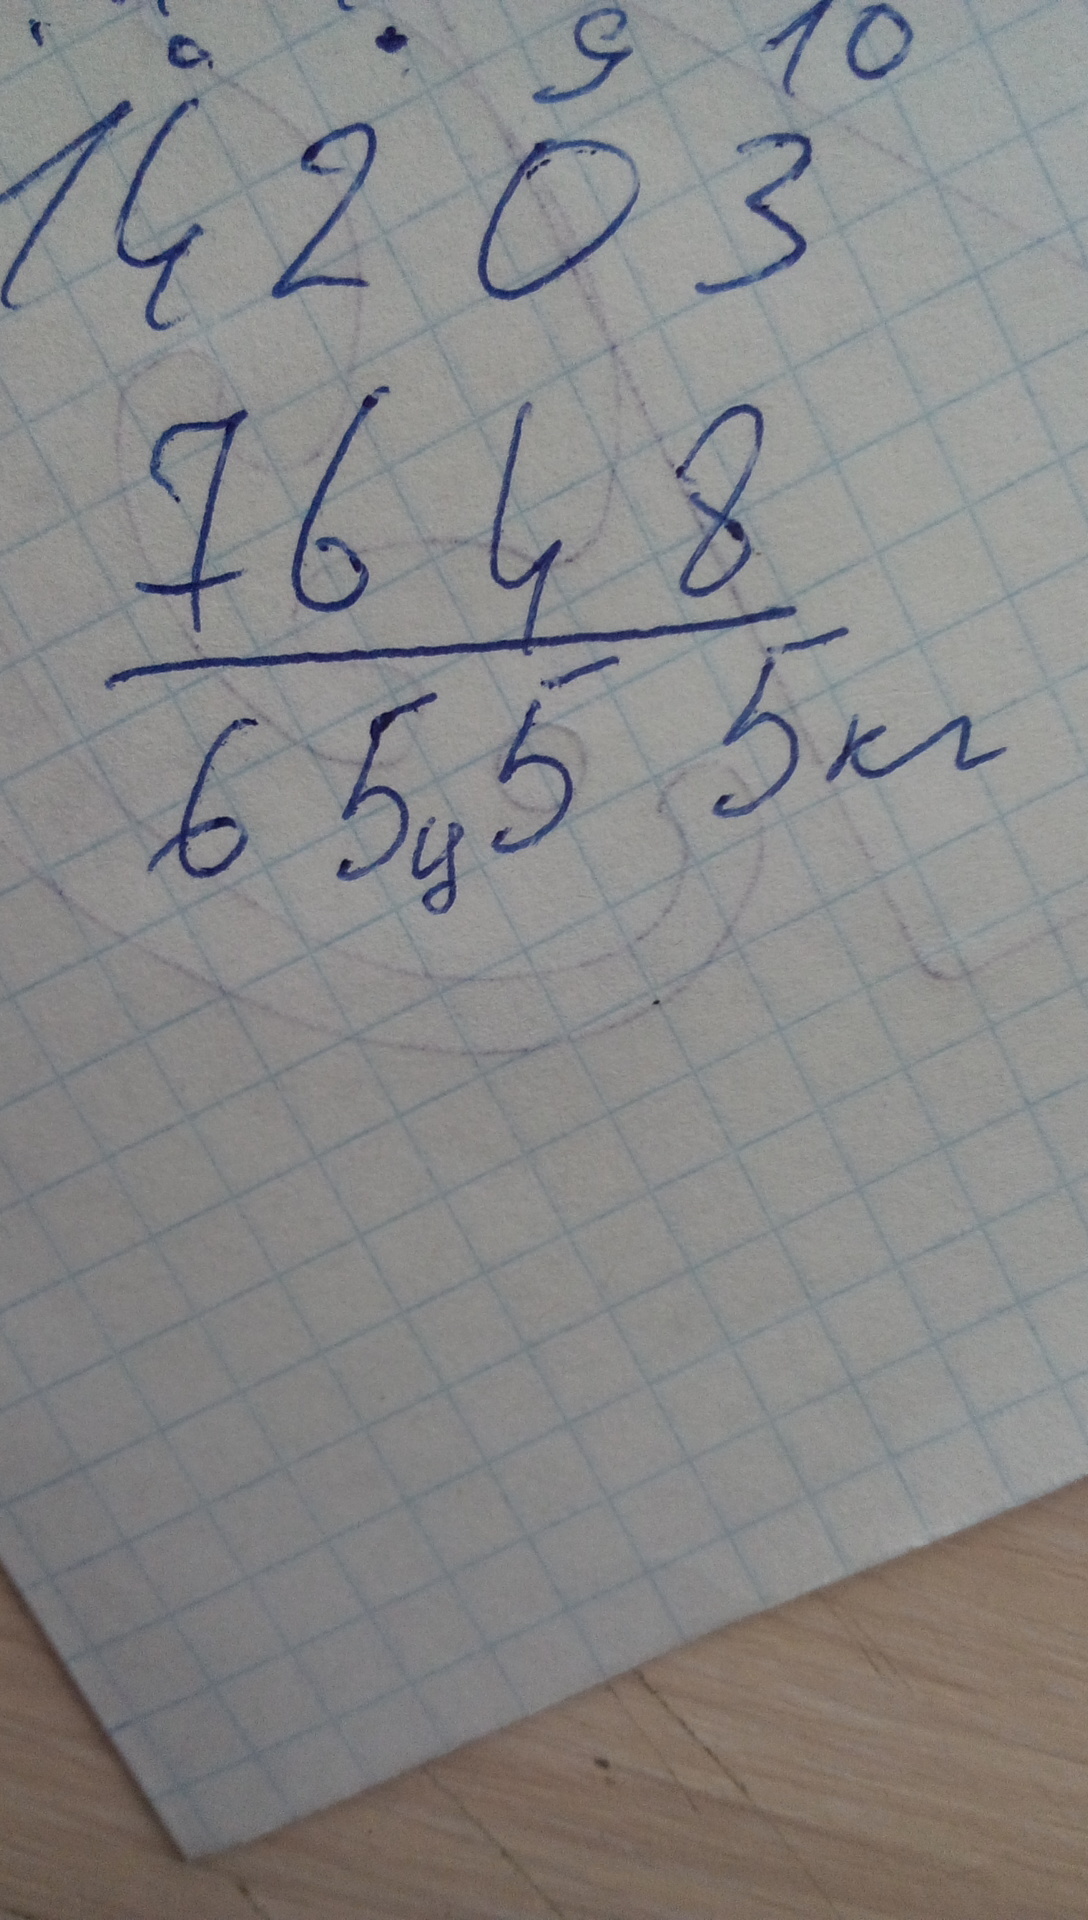 . . . 9 10
14203
7648
65ц55кг